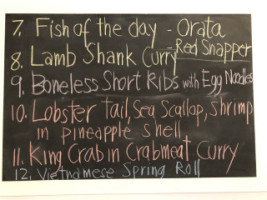 7. Fish of the day - Orata
- Red Snapper
8. Lamb Shank Curry
9. Boneless Short Ribs with Egg Noodles
10. Lobster Tail, Sea Scallop, Shrimp
in pineapple shell
11. King Crab in Crabmeat Curry
12. Vietnamese Spring Roll